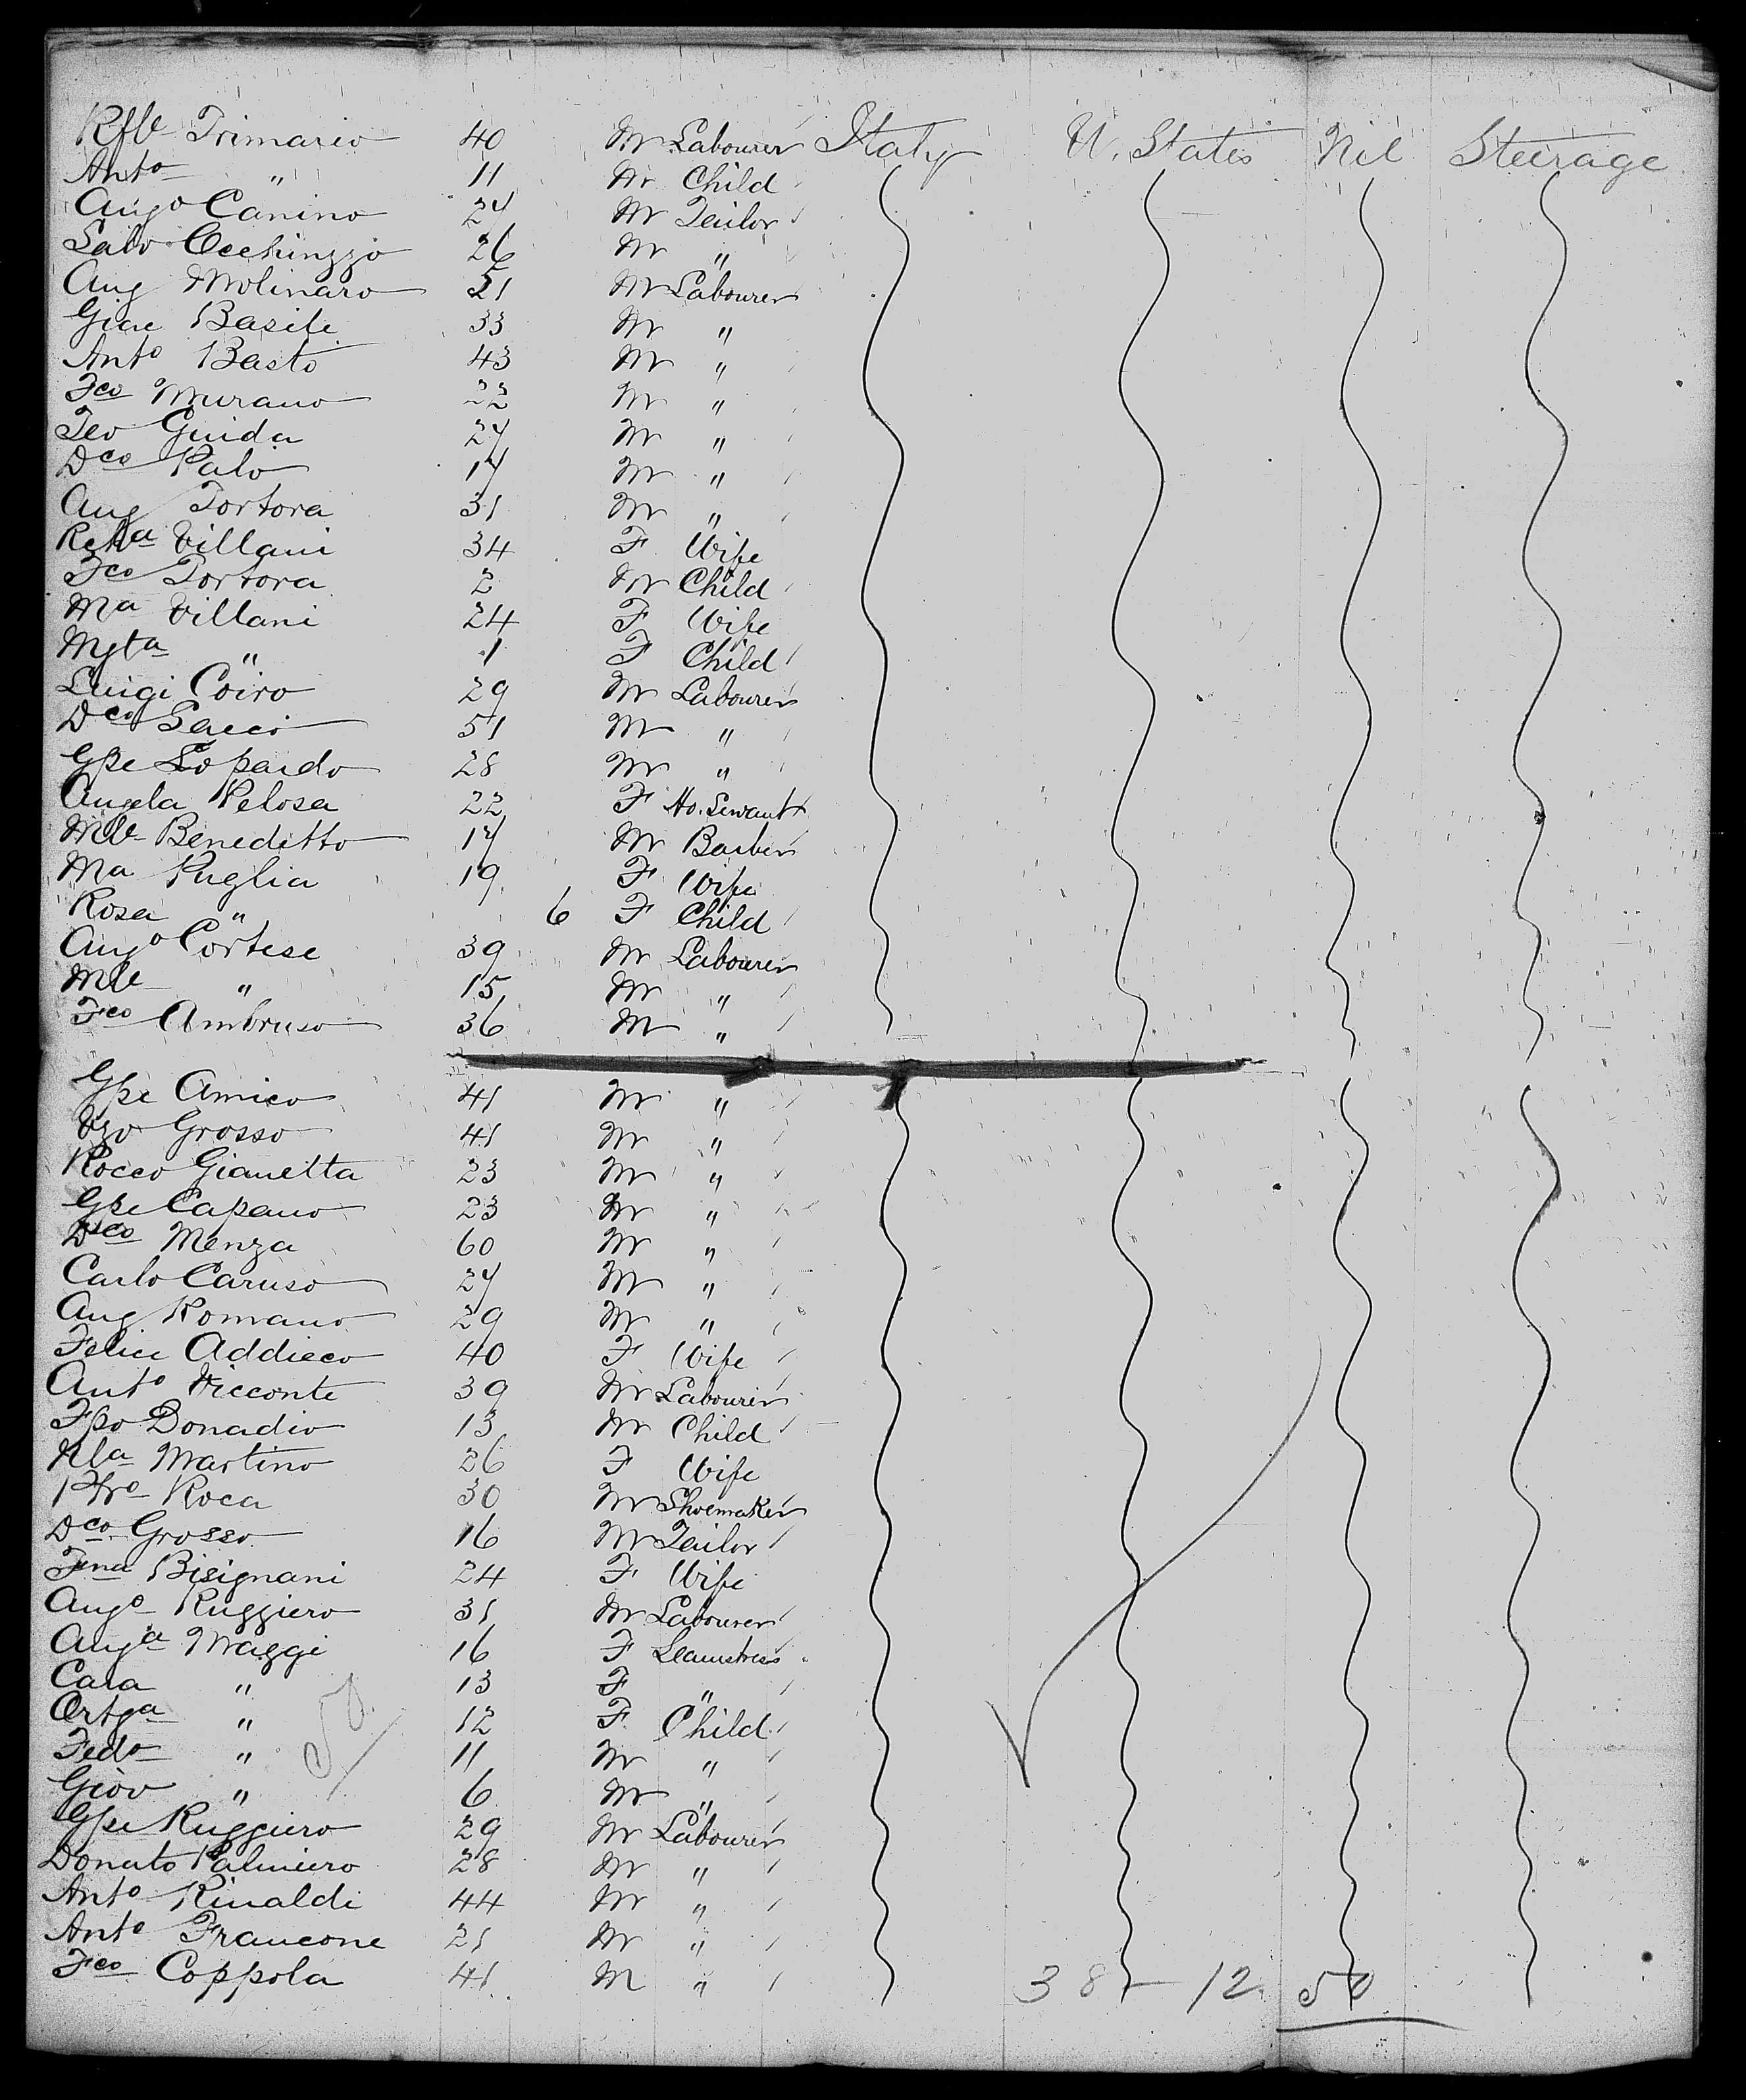 Rfle Trimario 40 M Labourer Italy U. States Nil Steerage
Anto " 11 M Child
Ango Canino 24 M Tailor
Salv Occhinzzo 26 M "
Ang Molinaro 21 M Labourer
Giac Basile 33 M "
Anto Basto 43 M "
Fco Murano 22 M "
Teo Guida 24 M "
Dco Palo 17 M "
Ang Tortora 31 M "
Villani 34 F Wife
Fco Tortora 2 M Child
Ma Villani 24 F Wife
Mgta " 1 F Child
Luigi Coiro 29 M Labourer
Dco Sacco 51 M "
Gpe Lopardo 28 M "
Angela Pelosa 22 F Ho. Servant
Mle Beneditto 17 M Barber
Ma Puglia 19 F Wife
Rosa " 6 F Child
Ango Cortese 39 M Labourer
Mle " 15 M "
Fco Ambruso 36 M "
Gpe Amico 41 M "
Vzo Grosso 41 M "
Rocco Gianetta 23 M "
Gpe Capano 23 M "
Dco Menza 60 M "
Carlo Caruso 27 M "
Ang Romano 29 M "
Felice Addieco 40 F Wife
Anto Vicconte 39 M Labourer
Fpo Donadio 13 M Child
Martino 26 F Wife
Ptro Roca 30 M Shoemaker
Dco Grosso 16 M Tailor
Fna Bisignani 24 F Wife
Ango Ruggiero 31 M Labourer
Anga Maggi 16 F Seamstress
Cara " 13 F "
Ortga " 12 F Child
Fedo " 11 M "
Giov " 6 M "
Gpe Ruggiero 29 M Labourer
Donato Palmiero 28 M "
Anto Rinaldi 44 M "
Anto Francone 21 M "
Fco Coppola 41 M "
38 - 12 50